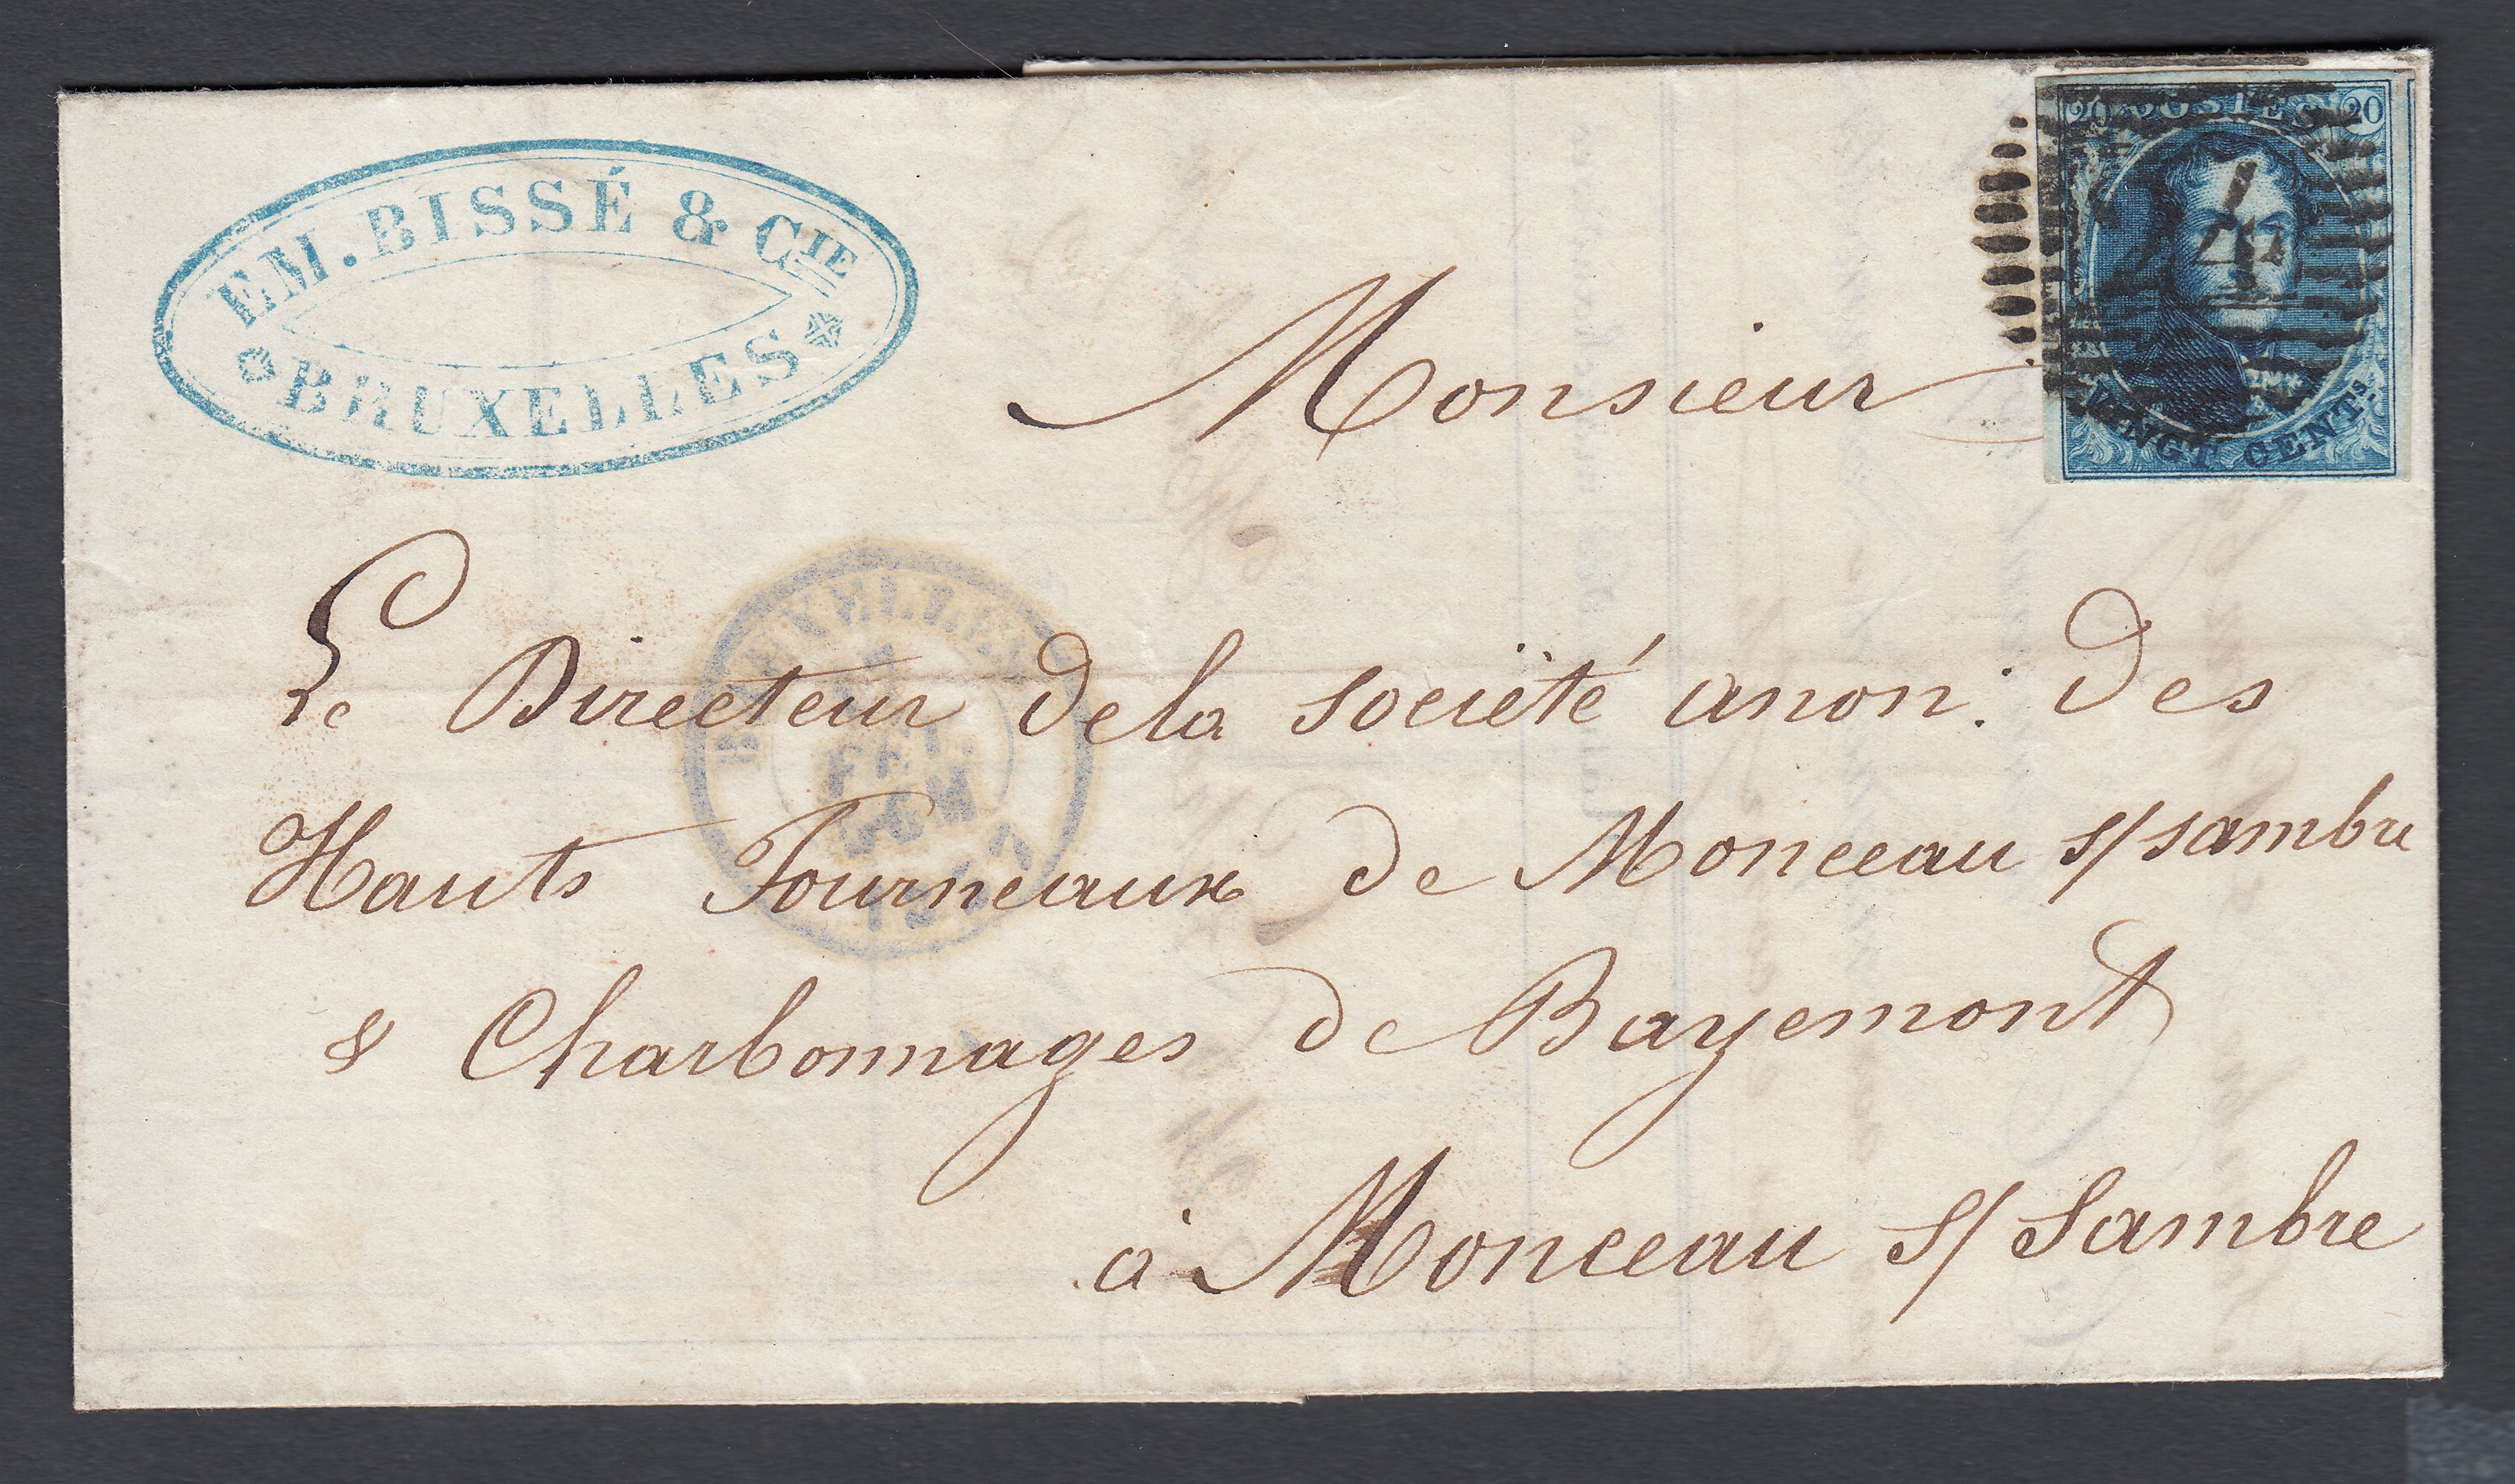 EM. BISSÉ & CIE
BRUXELLES
20 POSTES 20
24
VINGT CENTS.
Monsieur
BRUXELLES
Le Directeur de la société anon: des
Hauts Fourneaux de Monceau s/ sambre
& Charbonnages de Bayemont
à Monceau s/ Sambre